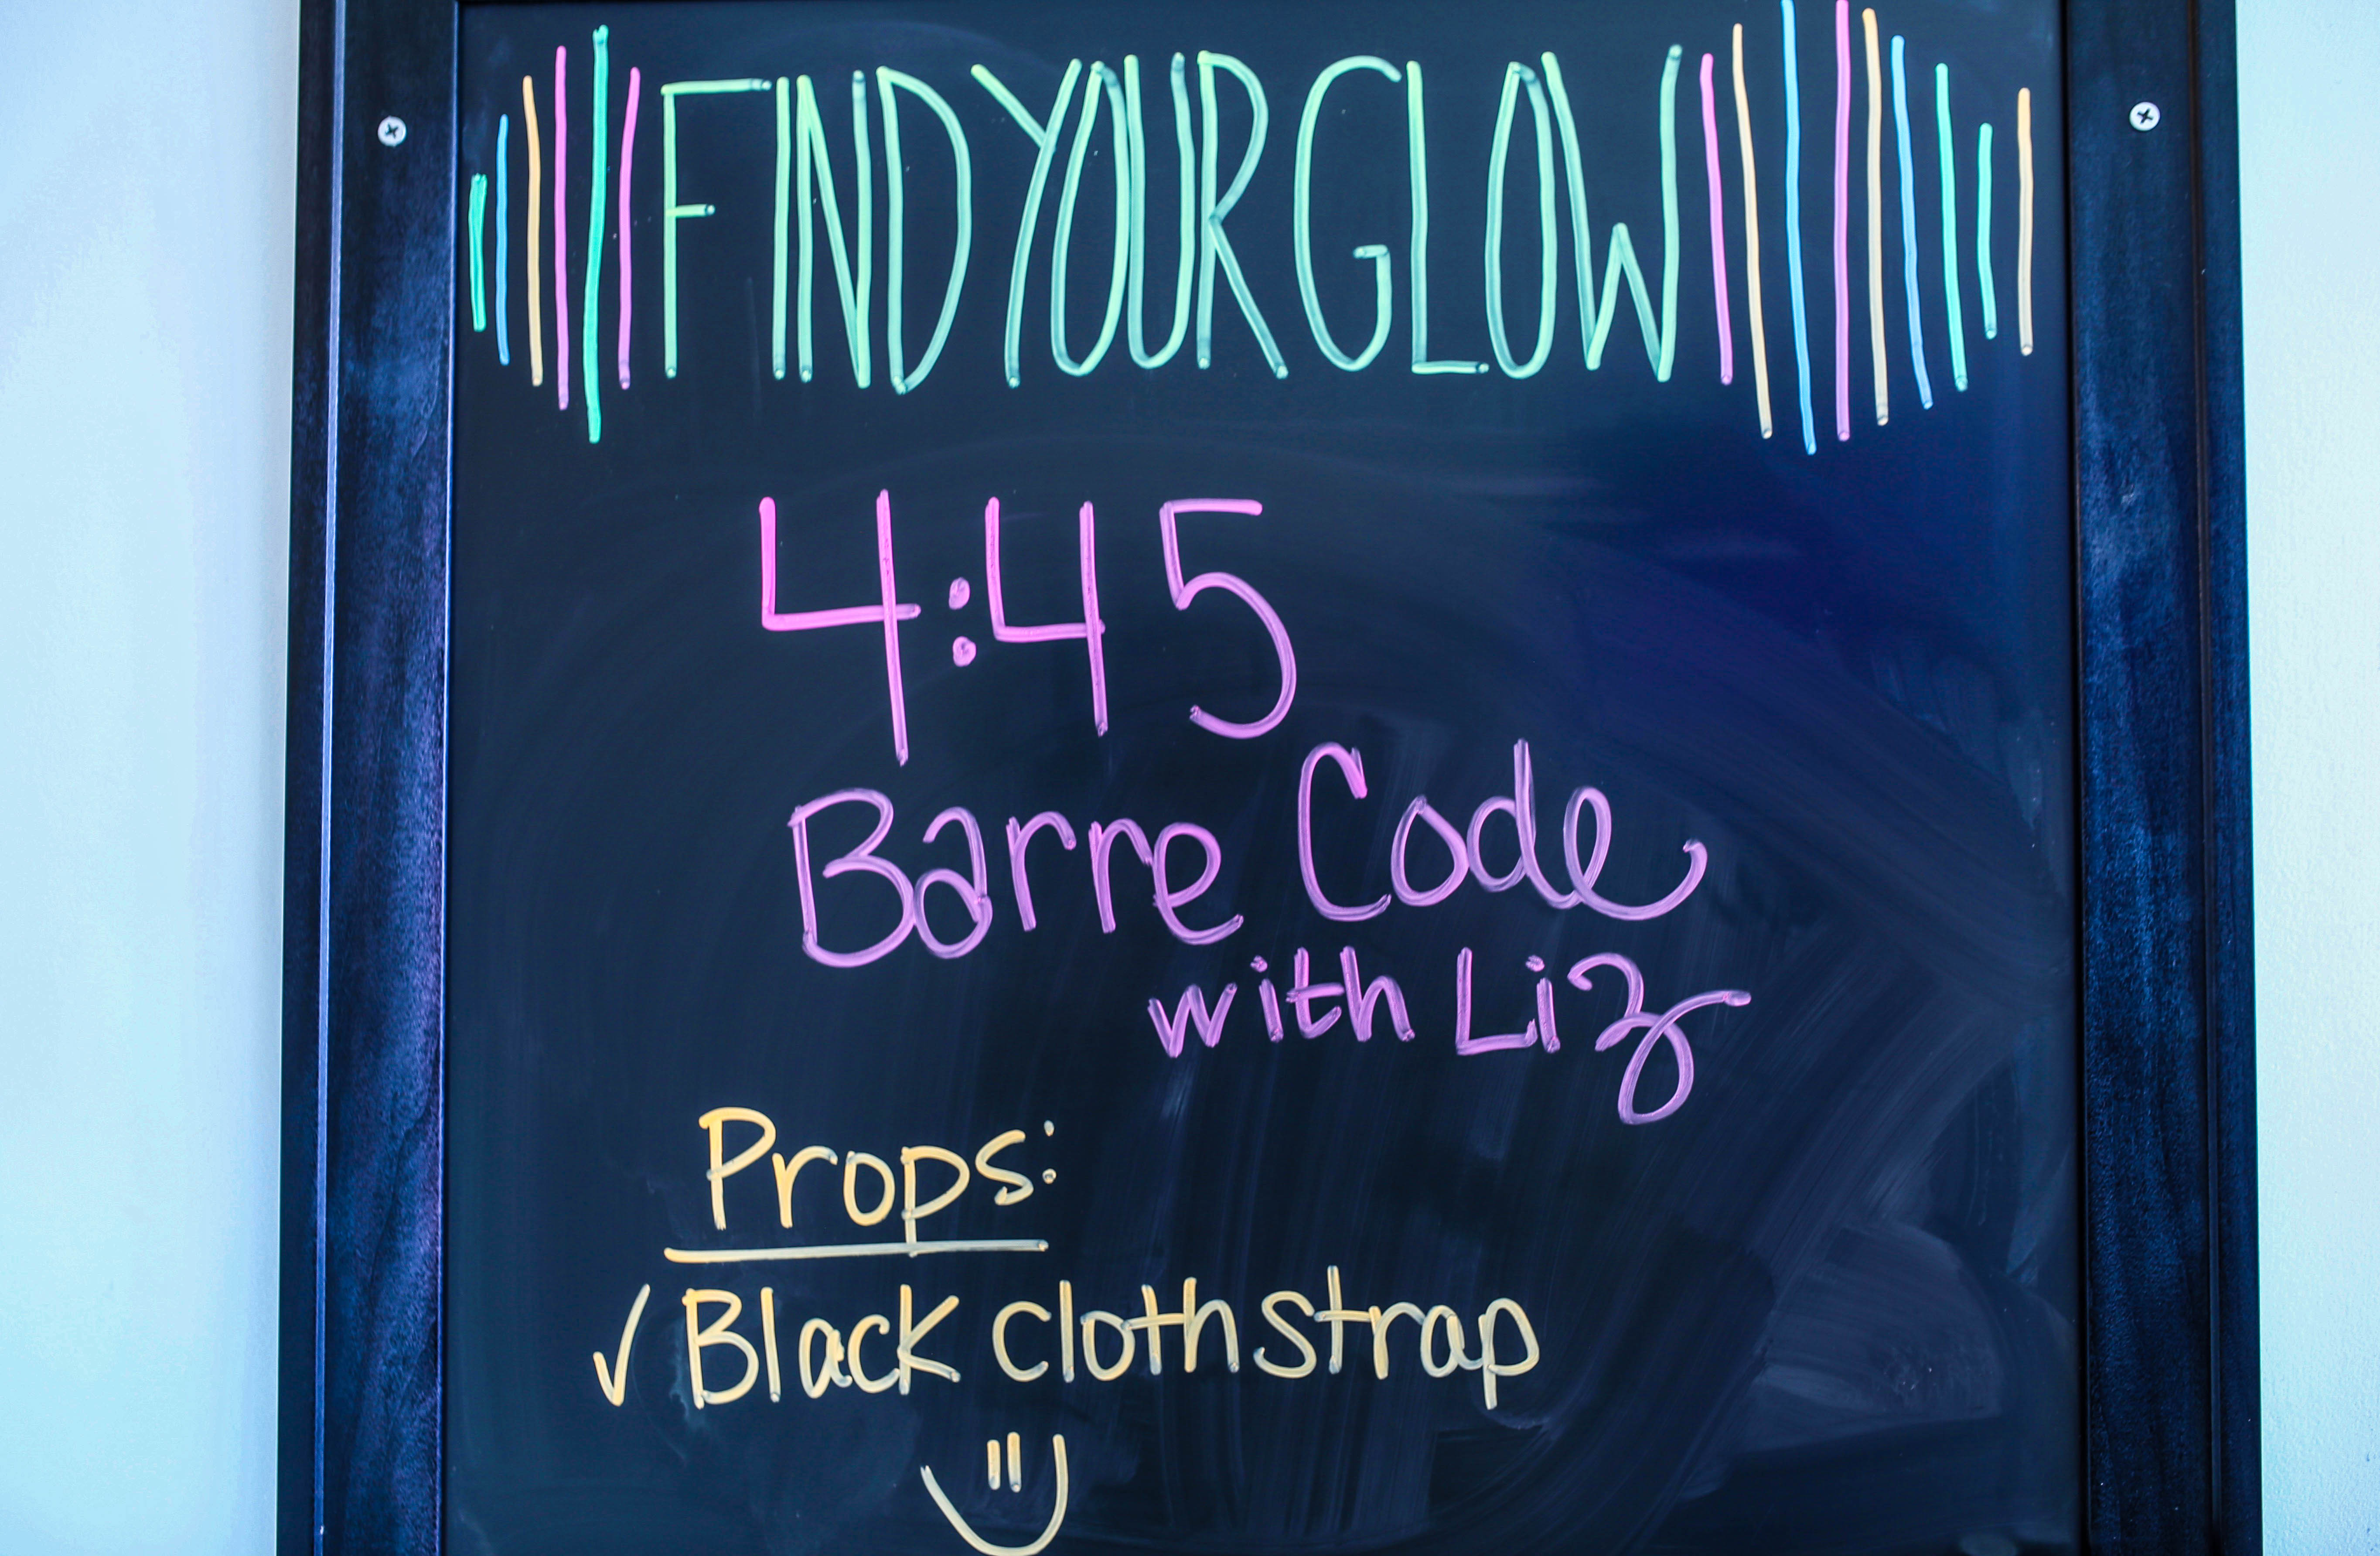 FIND YOUR GLOW
4:45
Barre Code
with Liz
Props:
✓ Black cloth strap